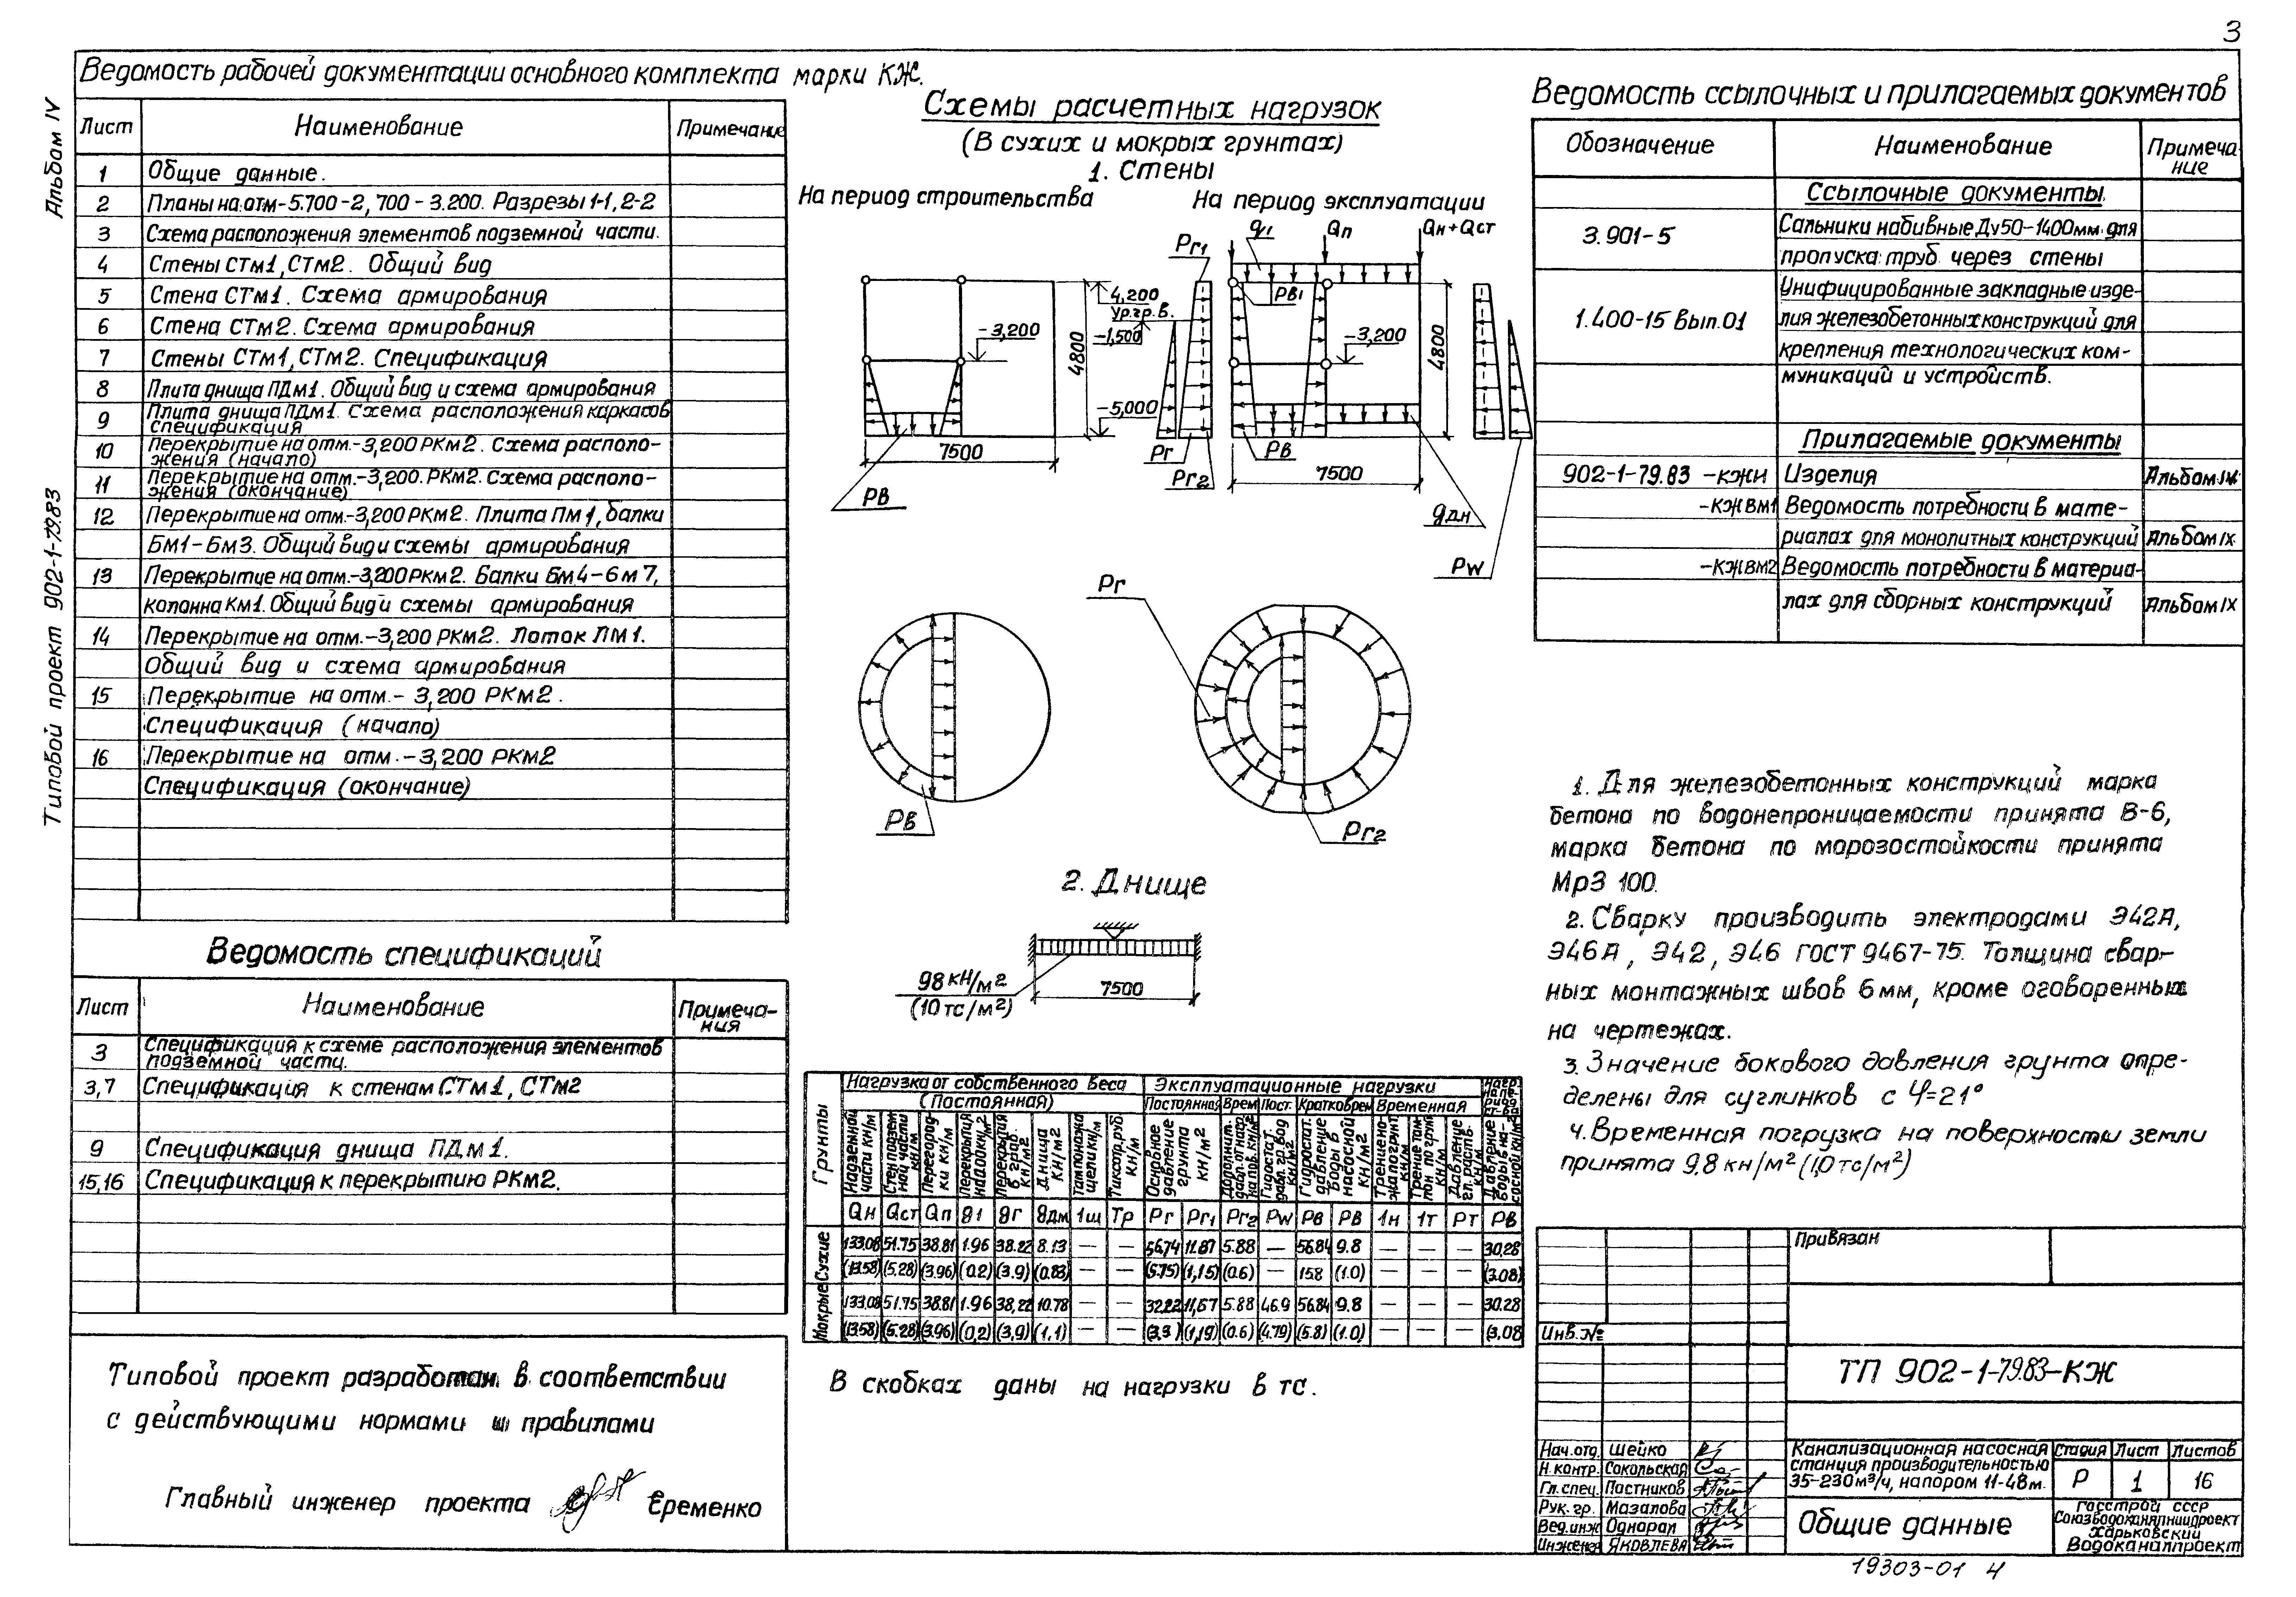 3
Альбом IV
Типовой проект 902-1-79.83
Ведомость рабочей документации основного комплекта марки КЖ.
Лист Наименование Примечание
1 Общие данные.
2 Планы на отм-5.700-2,700-3.200. Разрезы 1-1, 2-2
3 Схема расположения элементов подземной части.
4 Стены СТм1, СТм2. Общий вид
5 Стена СТм1. Схема армирования
6 Стена СТм2. Схема армирования
7 Стены СТм1, СТм2. Спецификация
8 Плита днища ПДм1. Общий вид и схема армирования
9 Плита днища ПДм1. Схема расположения каркасов
спецификация
10 Перекрытие на отм.-3,200 РКм2. Схема располо-
жения (начало)
11 Перекрытие на отм.-3,200. РКм2. Схема располо-
жения (окончание)
12 Перекрытие на отм.-3,200 РКм2. Плита Пм1, балки
Бм1-Бм3. Общий вид и схемы армирования
13 Перекрытие на отм.-3,200 РКм2. Балки Бм4-бм7,
колонна Км1. Общий вид и схемы армирования
14 Перекрытие на отм.-3,200 РКм2. Лоток ЛМ1.
Общий вид и схема армирования
15 Перекрытие на отм.- 3,200 РКм2.
Спецификация (начало)
16 Перекрытие на отм.-3,200 РКм2
Спецификация (окончание)
Ведомость спецификаций
Лист Наименование Примеча-
ния
3 Спецификация к схеме расположения элементов
подземной части.
3,7 Спецификация к стенам СТм1, СТм2
9 Спецификация днища ПДм1.
15,16 Спецификация к перекрытию РКм2.
Типовой проект разработан в соответствии
с действующими нормами и правилами
Главный инженер проекта Еременко
Схемы расчетных нагрузок
(В сухих и мокрых грунтах)
1. Стены
На период строительства
На период эксплуатации
-3,200
4800
7500
Рв
4,200
Ур.гр.в.
-1,500
-5,000
Рг1
q1
Qп
Qн+Qст
Рв1
-3,200
4800
Рг
Рг2
Рв
7500
qдн
Рw
Рв
Рг
Рг2
2. Днище
98 кН/м2
(10 тс/м2)
7500
Грунты
Нагрузка от собственного веса
(Постоянная)
Эксплуатационные нагрузки
Постоянная Врем Пост. Кратковрем Временная
Надземной части кН/м
Стен подзем ной части кН/м
Перегород ки кН/м
Перекрытия надзодки
Перекрытия в граб. кН/м2
Днища кН/м2
Тампонажа щели кН/м
Тиксотр. руб кН/м
Основное давление грунта кН/м2
Гидростат. давл. гр. вод кН/м2
Гидростат. давление воды в насосной кН/м2
Qн Qст Qп q1 qг qдм 1щ Тр Рг Рг1 Рг2 Рw Рв Рв 1н 1т Рт Рв
Сухие 133.08 51.75 38.81 1.96 38.22 8.13 — — 56.74 11.67 5.88 — 56.84 9.8 — — — 30.28
(13.58) (5.28) (3.96) (0.2) (3.9) (0.83) — — (5.75) (1,15) (0.6) — 15.8 (1.0) — — — (3.08)
Мокрые 133.08 51.75 38.81 1.96 38,22 10.78 — — 32.22 11,67 5.88 46.9 56.84 9.8 — — — 30.28
(13.58) (5.28) (3.96) (0,2) (3,9) (1,1) — — (3.3) (1,19) (0.6) (4.79) (5.8) (1.0) — — — (3,08
В скобках даны на нагрузки в тс.
Ведомость ссылочных и прилагаемых документов
Обозначение Наименование Примеча
ние
Ссылочные документы.
3.901-5 Сальники набивные Ду50-1400мм. для
пропуска труб через стены
1.400-15 Вып.01 Унифицированные закладные изде-
лия железобетонных конструкций для
крепления технологических ком-
муникаций и устройств.
Прилагаемые документы
902-1-79.83 -КЖИ Изделия Альбом IX
-КЖВМ1 Ведомость потребности в мате-
риалах для монолитных конструкций Альбом IX
-КЖВМ2 Ведомость потребности в материа-
лах для сборных конструкций Альбом IX
1. Для железобетонных конструкций марка
бетона по водонепроницаемости принята В-6,
марка бетона по морозостойкости принята
Мрз 100.
2. Сварку производить электродами Э42А,
Э46А, Э42, Э46 ГОСТ 9467-75. Толщина свар-
ных монтажных швов 6мм, кроме оговоренных
на чертежах.
3. Значение бокового давления грунта опре-
делены для суглинков с φ=21°
4. Временная погрузка на поверхности земли
принята 9.8 кн/м2 (1,0 тс/м2)
Привязан
Инв. №
ТП 902-1-79.83-КЖ
Нач.отд. Шейко
Н.контр. Сокольская
Гл.спец. Постников
Рук.гр. Мазалова
Вед.инж Однорал
Инженер Яковлева
Канализационная насосная
станция производительностью
35-230м³/ч, напором 11-48м.
Стадия Лист Листов
Р 1 16
Общие данные
Госстрой СССР
Союзводоканалниипроект
Харьковский
Водоканалпроект
19303-01 4